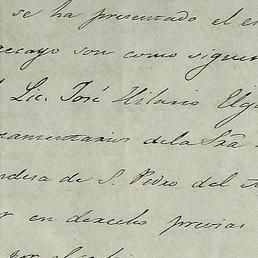 se ha presentado el en
ensayo son como siguen
Lic. José Hilario Elg
tamentarios de la Sra
rdera de S. Pedro del
en derecho previas
por el